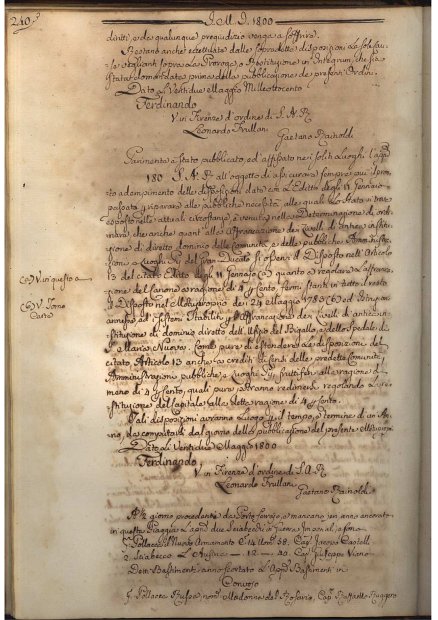 240.
I. M. I. 1800
diritti, e da qualunque pregiudizio venga a soffrire.
Restano anche eccettuate dalle sopradette disposizioni le sole Cau-
se veglianti sopra la Proroga, o Restituzione in Integrum, che sia
stata domandata prima della pubblicazione de presenti Ordini.
Dato li Ventidue Maggio Milleottocento
Ferdinando
V. in Firenze d'ordine di S. A. R.
Leonardo Frullani
Gaetano Rainoldi
Parimente è stato pubblicato, ed affisso ne i soliti Luoghi
180 S. A. R. all'oggetto di assicurare sempre più il pron-
to adempimento delle disposizioni date con l'Editto degli 11 Gennaio
passato, e riparare alle pubbliche necessità alle quali lo Stato
esposto nelle attuali circostanze è venuta nella Determinazione di ordi-
nare che anche quanto alle affrancazioni dei Livelli d'antica insti-
tuzione di diretto dominio delle Comunità, e delle pubbliche Amminist-
zioni, e Luoghi Pij del Gran Ducato si osservi il Disposto nell'Articolo
12 del citato Editto degli 11 Gennaio (a) quanto a regolare l'affranca-
zione del Canone a ragione di 4 per cento, fermi stanti in tutto il resto
il Disposto nel Motuproprio dei 24 Maggio 1780 (b) ed Istruzioni
annesse ed i sistemi stabiliti per l'affrancazione dei Livelli di antica in-
stituzione di dominio diretto dell'Ufizio del Bigallo, e dello Spedale di
S. Maria Nuova. Come pure di estendere la disposizione del
citato Articolo 13 anche ai crediti di fondi delle predette Comunità,
Amministrazioni pubbliche e Luoghi Pij fruttiferi alla ragione di
meno di 4 per cento, quali pure potranno redimersi regolando la re-
stituzione del Capitale alla detta ragione di 4 per cento.
Tali disposizioni avranno luogo per il tempo, e termine di un An-
no, da computarsi dal giorno della pubblicazione del presente Motuproprio
Dato li Ventidue Maggio 1800
Ferdinando
V. in Firenze d'ordine di S. A. R.
Leonardo Frullani
Gaetano Rainoldi
(a) V. in questo a
(b) V. Tomo
Carte
giorno procedente da Porto Ferrajo, e mancano un anno ancorato
in questa Spiaggia
Pollacca Armamento C. 14 Uom. 58. Cap.
2 Sciabecco L'Austria — 12 — 40. Cap. Giuseppe
Detti Bastimenti anno scortato i Bastimenti in
Convojo
Pollacca Russa nom. Madonna del Rosario, Cap. Raffaello Ruggero